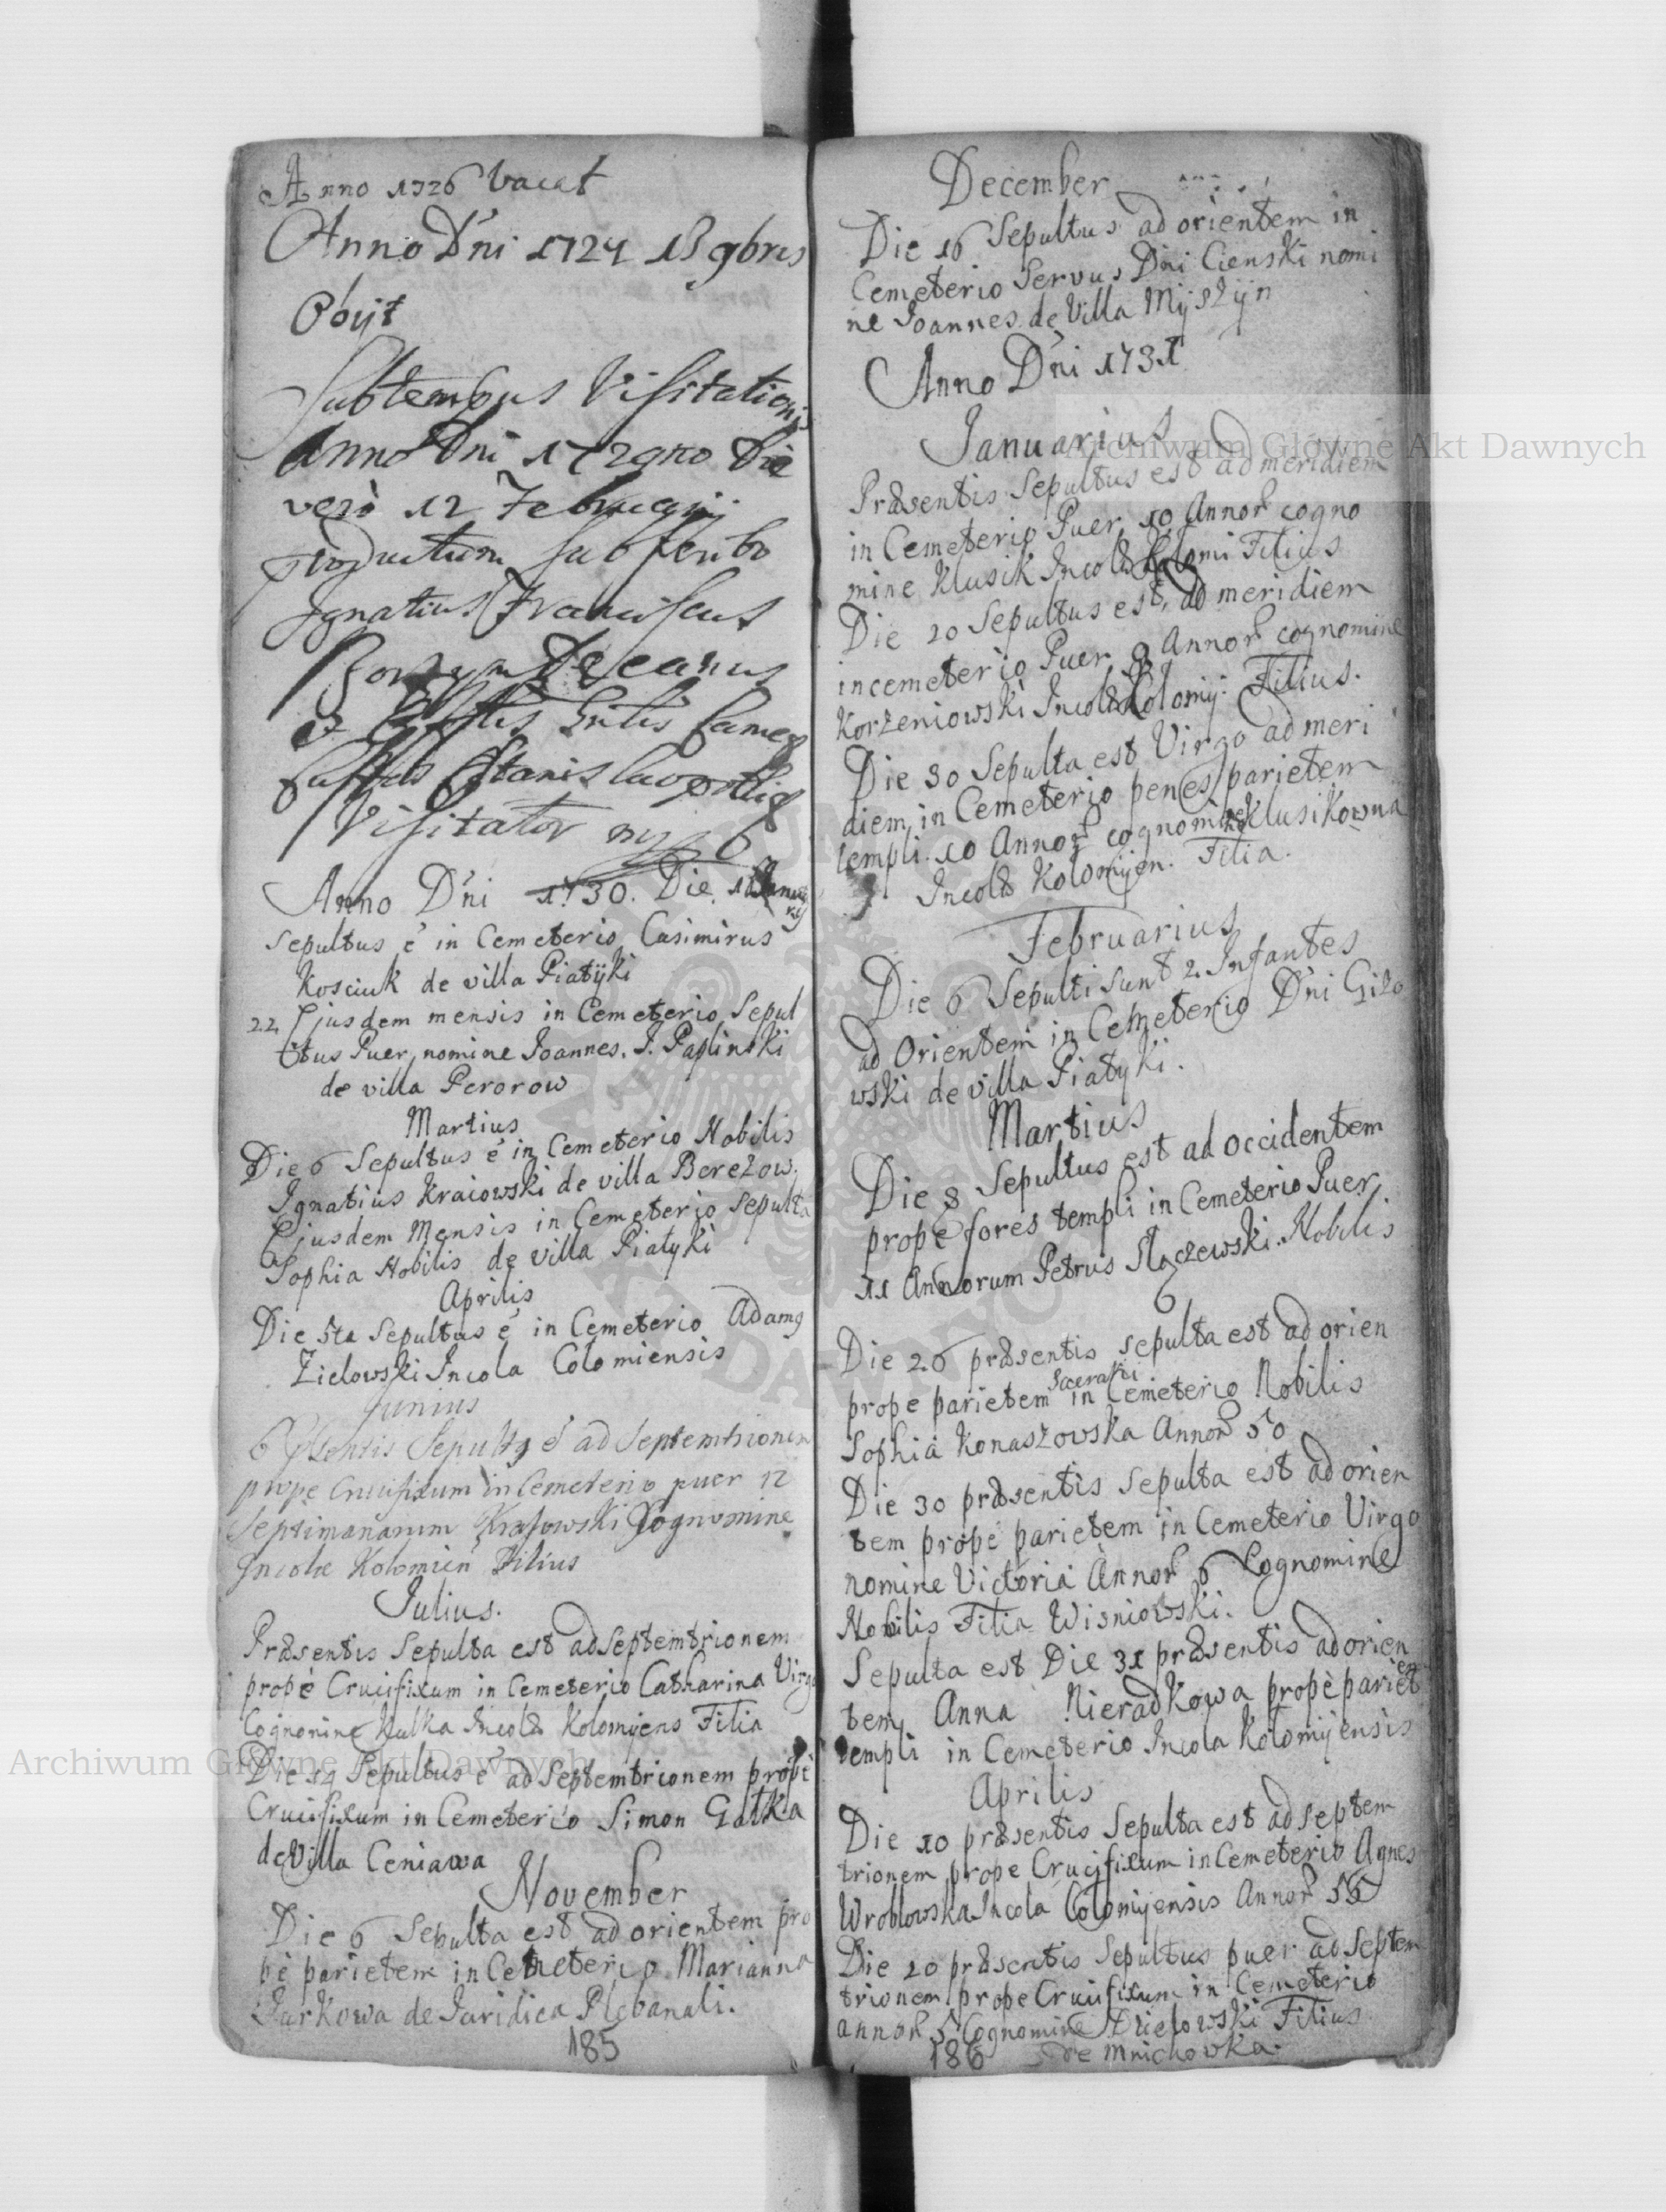 Anno 1726 Vacat
Anno D'ni 1724 15 9bris
Obijt
Sub tempus Visitationis
Anno Dni 1729no Die
verò 12 Februarij
productum subscribo
Ignatius Franciscus
Decanus
Visitator
Anno D'ni 1730. Die
Sepultus è in Cemeterio Casimirus
Kosciuk de villa Piatÿki
22 Ejusdem mensis in Cemeterio Sepul
tus Puer, nomine Joannes. J. Paplinski
de villa Perorow
Martius
Die 6 Sepultus è in Cemeterio Nobilis
Ignatius Kraiowski de villa Berezow.
Ejusdem Mensis in Cemeterio Sepulta
Sophia Nobilis de villa Piatyki
Aprilis
Die 5ta Sepultus è in Cemeterio Adamg
Zielowski Incola Colomiensis
Junius
6 è ad Septemtrionem
prope Crucifixum in Cemeterio puer 12
Septimanarum Cognomine
Incolæ Kolomien Filius
Julius.
Præsentis Sepulta est ad Septemtrionem
propè Crucifixum in Cemeterio Catharina Virgo
Cognomine Kulka Incolæ Kolomijens Filia
Die 14 Sepultus è ad Septemtrionem propè
Crucifixum in Cemeterio Simon Gałka
de Villa Ceniawa
November
Die 6 Sepulta est ad orientem pro
pè parietem in Cemeterio Marianna
Jurkowa de Juridica Plebanali.
185
December
Die 16 Sepultus ad orientem in
Cemeterio Servus Dni Cienski nomi
ne Joannes de Villa Myszyn
Anno D'ni 1731
Januarius
Præsentis Sepultus est ad meridiem
in Cemeterio Puer 10 Annor cogno
mine Klusik Incolæ Kolomi Filius
Die 20 Sepultus est, ad meridiem
in cemeterio Puer 9 Annor cognomine
Korzeniowski Incolæ Kolomij. Filius.
Die 30 Sepulta est Virgo ad meri
diem in Cemeterio penes parietem
templi. 10 Annor cognomine Klusikowna
Incolæ Kolomijen. Filia.
Februarius
Die 6 Sepulti sunt 2. Infantes
ad Orientem in Cemeterio D'ni Gizo
wski de villa Piatyki.
Martius
Die 8 Sepultus est ad occidentem
prope fores templi in Cemeterio Puer
11 Annorum Petrus Slączewski. Nobilis
Die 26 præsentis sepulta est ad orien
prope parietem Sacrarii in Cemeterio Nobilis
Sophia Konaszowska Annor 50
Die 30 præsentis sepulta est ad orien
tem propè parietem in Cemeterio Virgo
nomine Victoria Annor 6 Cognomine
Nobilis Filia Wisniowski.
Sepulta est Die 31 præsentis ad orien
tem Anna Nieradkowa propè pariet em
templi in Cemeterio Incola Kolomijensis
Aprilis
Die 10 præsentis Sepulta est ad septem
trionem prope Crucifixum in Cemeterio Agnes
Wroblowska Incola Colomijensis Annor 55
Die 20 præsentis Sepultus puer ad Septem
trionem prope Crucifixum in Cemeterio
annor 5 Cognomine Dzielowski Filius
186 de Mnichowka.
Archiwum Główne Akt Dawnych
Archiwum Główne Akt Dawnych